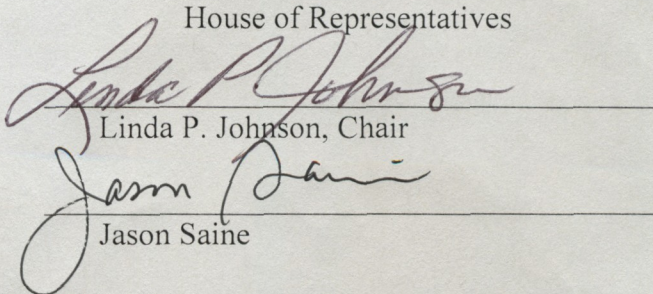 House of Representatives
Linda P Johnson
Linda P. Johnson, Chair
Jason Saine
Jason Saine